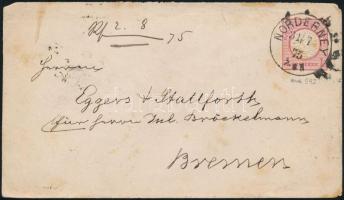 2. 8
75
NORDERNEY
75
Herren
Eggers & Stallforth
für Herrn Jul. Bröckelmann
Bremen